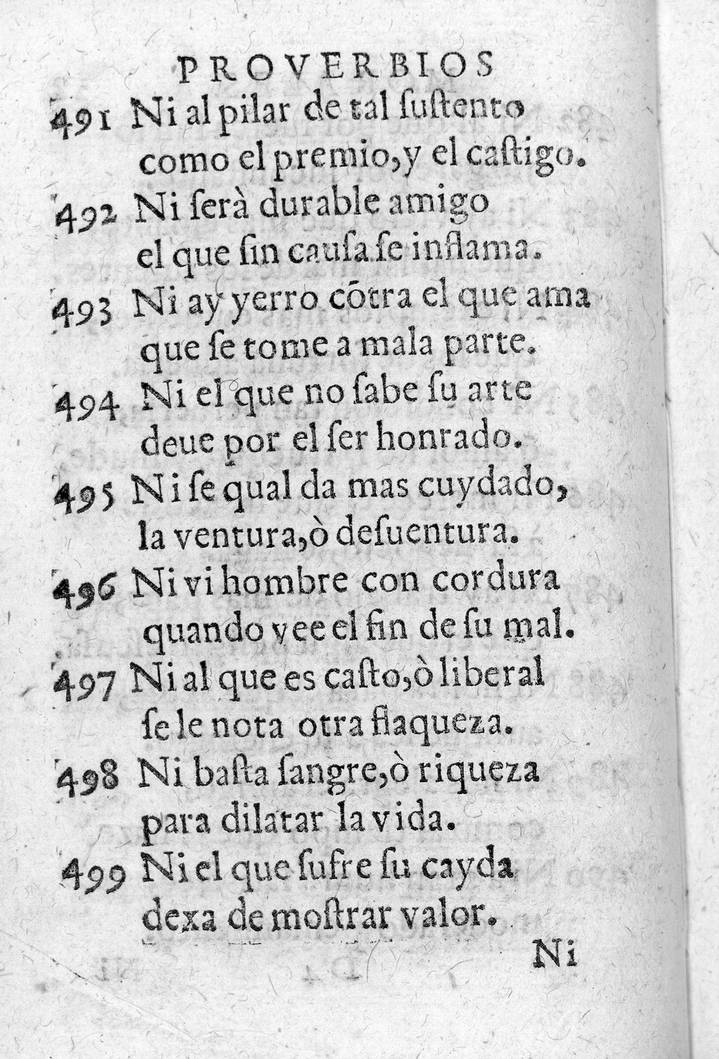 PROVERBIOS
491 Ni al pilar de tal ſuſtento
como el premio,y el caſtigo.
492 Ni ſerà durable amigo
el que ſin cauſa ſe inflama.
493 Ni ay yerro cõtra el que ama
que ſe tome a mala parte.
494 Ni el que no ſabe ſu arte
deue por el ſer honrado.
495 Ni ſe qual da mas cuydado,
la ventura,ò deſuentura.
496 Ni vi hombre con cordura
quando vee el fin de ſu mal.
497 Ni al que es caſto,ò liberal
ſe le nota otra flaqueza.
498 Ni baſta ſangre,ò riqueza
para dilatar la vida.
499 Ni el que ſufre ſu cayda
dexa de moſtrar valor.
Ni